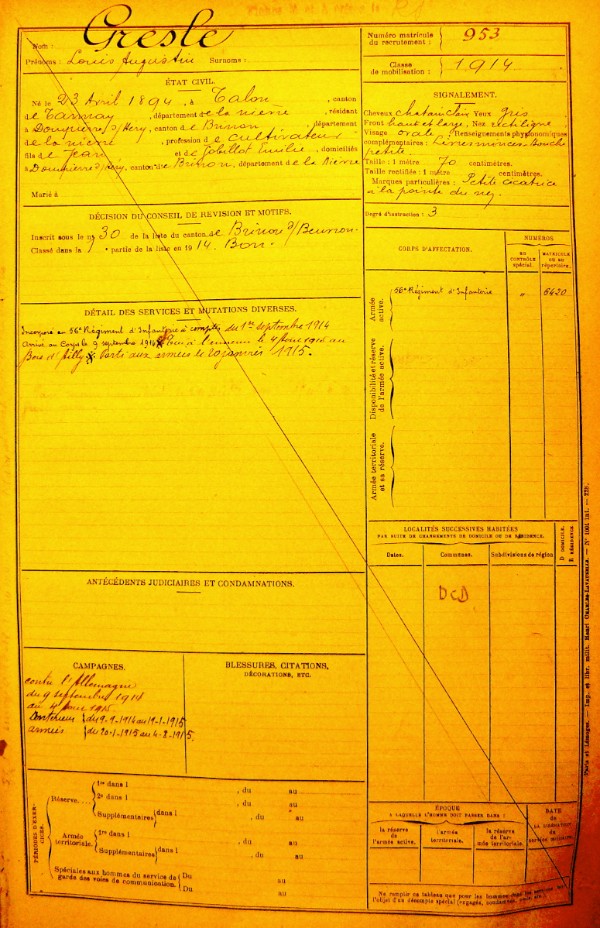 Nom : Gresle
Prénoms : Louis Augustin Surnoms :
Numéro matricule du recrutement : 953
Classe de mobilisation : 1914
ÉTAT CIVIL.
Né le 23 Avril 1894, à Talon, canton
de Tannay, département de la nievre, résidant
à Dompierre s/ Héry, canton de Brinon, département
de la nievre, profession de cultivateur
fils de Jean et de Emilie, domiciliés
à Dompierre s/ héry, canton de Brinon, département de la Nievre
Marié à
SIGNALEMENT.
Cheveux chatain clair Yeux gris
Front haut et large, Nez rectiligne
Visage ovale, Renseignements physionomiques
complémentaires : Levres minces. Bouche
petite.
Taille : 1 mètre 70 centimètres.
Taille rectifiée : 1 mètre centimètres.
Marques particulières : Petite cicatrice
à la pointe du nez.
Degré d'instruction : 3
DÉCISION DU CONSEIL DE REVISION ET MOTIFS.
Inscrit sous le no 30 de la liste du canton de Brinon s/ Beuvron.
Classé dans la partie de la liste en 1914. Bon.
CORPS D'AFFECTATION.
NUMÉROS
AU CONTRÔLE spécial.
MATRICULE OU AU RÉPERTOIRE.
Armée active.
56e Régiment d'Infanterie 6420
Disponibilité et réserve de l'armée active.
Armée territoriale et sa réserve.
DÉTAIL DES SERVICES ET MUTATIONS DIVERSES.
Incorporé au 56e Régiment d'Infanterie à compter du 1er septembre 1914
Arrivé au Corps le 9 septembre 1914 Tué à l'ennemi le 4 au
Bois d'Ailly Parti aux armées le 20 janvier 1915.
LOCALITÉS SUCCESSIVES HABITÉES
PAR SUITE DE CHANGEMENTS DE DOMICILE OU DE RÉSIDENCE.
Dates.
Communes.
Subdivisions de région
D DOMICILE.
R RÉSIDENCE.
DCD
ANTÉCÉDENTS JUDICIAIRES ET CONDAMNATIONS.
CAMPAGNES.
contre l'Allemagne
du 9 septembre 1914
au 4 1915
Intérieur du 9-9-1914 au 19-1-1915
armées du 20-1-1915 au 4-2-1915.
BLESSURES, CITATIONS,
DÉCORATIONS, ETC.
PÉRIODES D'EXERCICES.
Réserve.
1re dans l , du au
2e dans l , du au
Supplémentaires dans l , du au
, du au
Armée territoriale.
1re dans l , du au
Supplémentaires dans l , du au
, du au
Spéciales aux hommes du service de garde des voies de communication.
Du au
Du au
ÉPOQUE
À LAQUELLE L'HOMME DOIT PASSER DANS :
la réserve de l'armée active.
l'armée territoriale.
la réserve de l'armée territoriale.
DATE
DE LA LIBÉRATION DU service militaire.
Ne remplir ce tableau que pour les hommes
l'objet d'un décompte spécial (engagés,
Paris et Limoges. — Imp. et libr. milit. Henri CHARLES-LAVAUZELLE.